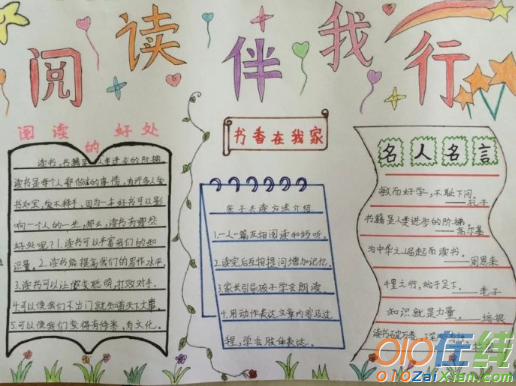 阅读伴我行
阅读的好处
读书,书籍是人类进步的阶梯
读书是每个人都
书如宝,爱不释手,因为一本好书可以影
响一个人的一生,那么,读书有哪些
好处呢?1.读书可以丰富我们的知
识量。2.读书能提高我们的写作水平。
3.读书可以让
4.可以使我们不出门就知道天下大事。
5.可以使我们变得有修养,有文化。
书香在我家
亲子共读方法介绍
1.一人一篇互相阅读和聆听。
2.读完后互相提问增加记忆。
3.家长引导孩子学会朗读
4.用动作表达文章内容马过
程,学会肢体表达。
名人名言
敏而好学,不耻下问。
——孔子
书籍是人类进步的阶梯。
——高尔基
为中华之崛起而读书。
——周恩来
千里之行,始于足下。
——老子
知识就是力量。
——培根
读书破万卷,下笔
010在线
010ZaiXian.com